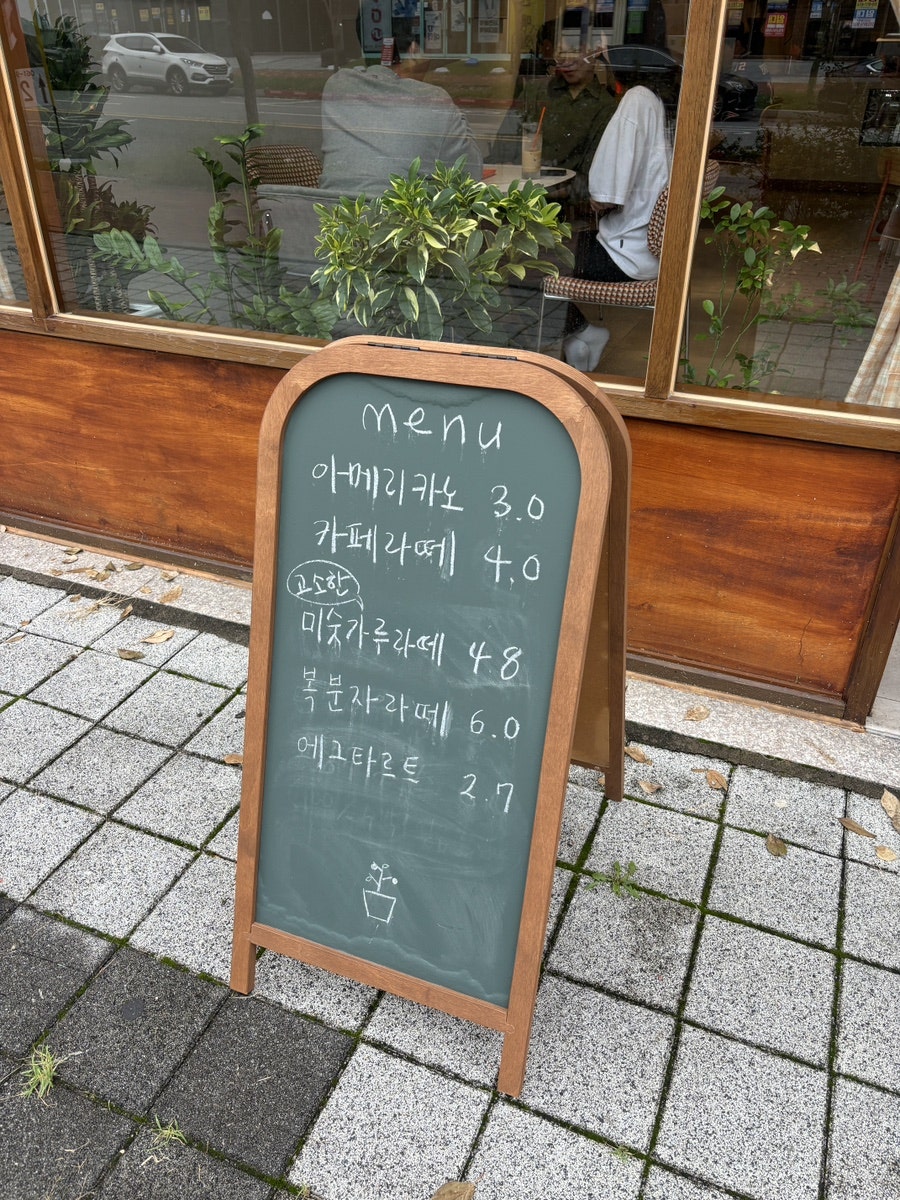 menu
아메리카노 3.0
카페라떼 4.0
고소한
미숫가루라떼 4.8
복분자라떼 6.0
에그타르트 2.7